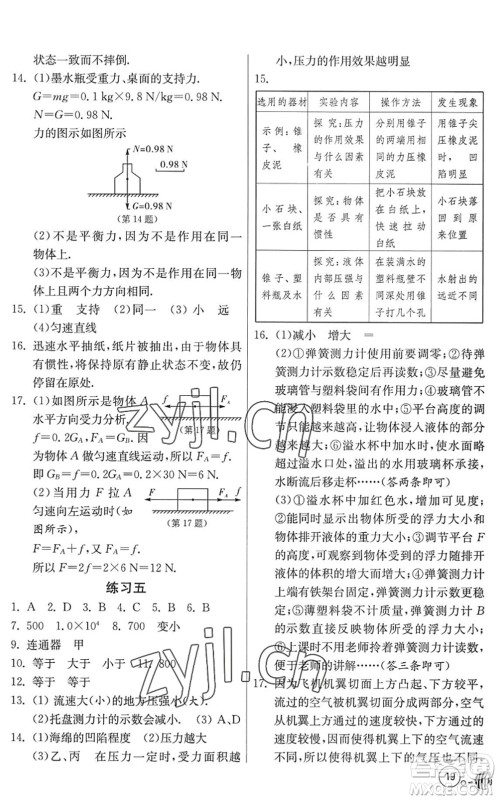 状态一致而不摔倒.
14. (1)墨水瓶受重力、桌面的支持力.
G=mg=0.1 kg×9.8 N/kg=0.98 N.
力的图示如图所示
N=0.98 N
0.98 N
G=0.98 N
(第14题)
(2)不是平衡力,因为不是作用在同一
物体上.
(3)不是平衡力,因为不是作用在同一物
体上且这两个力方向相同.
15. (1)重 支持 (2)同一 (3)小 远
(4)匀速直线
16. 迅速水平抽出,纸片被抽出,由于物体具
有惯性,将保持原有静止状态不变,故仍
停留在原处.
17. (1)如图所示是物体A
水平方向受力分析.
f=0.2G_A,F_A=G_B,因
f
F_A
(第17题)
为物体A做匀速直线运动,所以F_A=f.
所以G_B=0.2G_A=0.2×30 N=6 N.
(2)当用力F拉A
匀速向左运动时(如
图所示),
F
f
F_A
(第17题)
F=F_A+f,又F_A=f.
所以F=2f=2×6 N=12 N.
练习五
1. A 2. D 3. A 4. C 5. B 6. B
7. 500 1.0×10⁴ 8. 700 变小
9. 连通器 甲
10. 等于 大于 小于 11. 800
12. 等于 等于
13. (1)流速大(小)的地方压强小(大).
(2)托盘测力计的示数会减小. (3)A、D
14. (1)海绵的凹陷程度 (2)压力越大
(3)乙、丙 在压力一定时,受力面积越
小,压力的作用效果越明显
15.
选用的器材 实验内容 操作方法 发生现象
示例:锥子、橡皮泥 探究:压力的作用效果与什么因素有关 分别用锥子的两端用相同的力压橡皮泥 用锥子尖压橡皮泥时凹陷明显
小石块、一张白纸 探究:物体是否具有惯性 将小石块放在白纸上,快速拉动白纸 小石块落回到原来的位置
锥子、塑料瓶及水 探究:液体内部压强与什么因素有关 在装满水的塑料瓶壁不同深处用锥子打几个孔 水射出的远近不同
16. (1)减小 增大 =
(2)①弹簧测力计使用前要调零;②待弹
簧测力计示数稳定后再读数;③尽量增大
玻璃与塑料袋间的作用面积;④玻璃管不
能浸入塑料袋里的水中;⑤平台高度的调
节只能越来越高,让物体浸入液体的体积
越来越大;⑥溢水杯的水面在实验之初就
要和溢水口相平,不能低于溢水口;⑦不能
超过溢水口处,溢出的水用玻璃杯承接,
水断流后移走杯……(答两条即可)
(3)①溢水杯中加红色水,增强可见度;
②能同时显示出物体所受的浮力大小和
物体排开液体的重力大小;③调节平台F
的高度,可观察到物体受到的浮力随排开
液体的体积增大而增大;④调节平台的高
度到一定位置静止,弹簧测力计示数稳
定;⑤薄塑料袋忽略质量,弹簧测力计的示
数直接反映物体所受的浮力大小;⑥器材
固定,能清楚观察到弹簧测力计读数,便
于老师的讲解……(答三条即可)
17. 因为飞机机翼切面上方凸起、下方较平,
空气流过机翼切面部分成两部分,从机翼
上方流过的速度较大,从机翼下方流过的
速度较慢,从机翼上表面的空气流速
快,压强小;从机翼下表面的空气流速
zyjl.cn
19